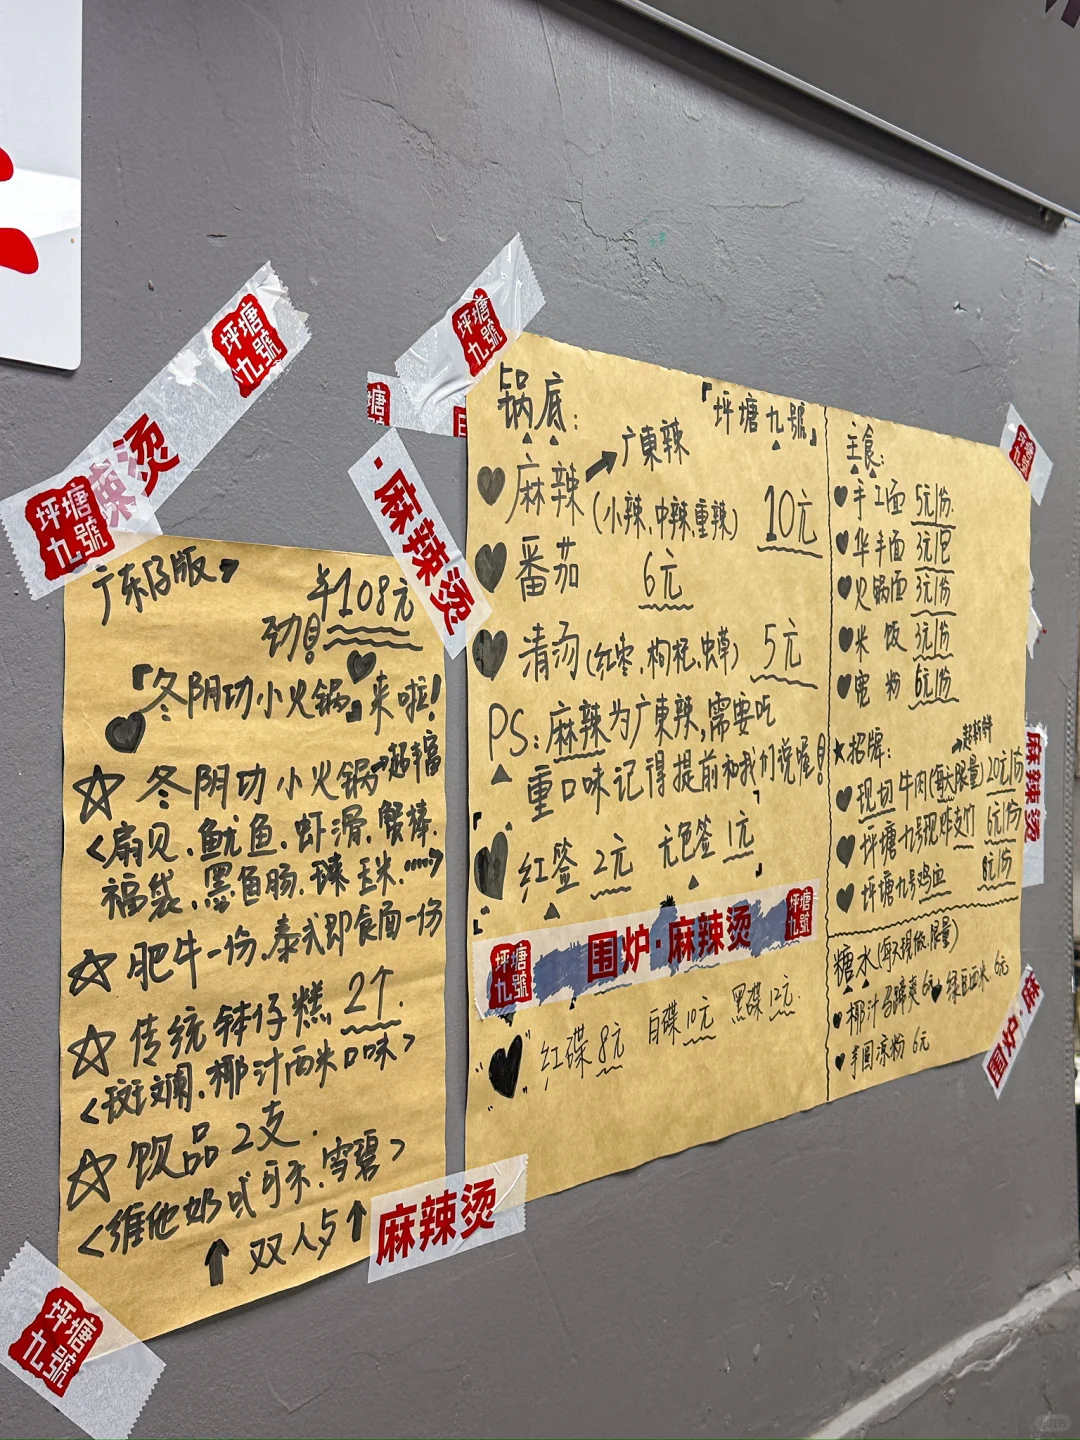 坪塘九號
辣烫
坪塘九號
广东仔版
¥108元
劲!
『冬阴功小火锅』来啦!
冬阴功小火锅→超丰富
<扇贝、鱿鱼、虾滑、蟹棒、
福袋、黑鱼肠、臻玉米、……>
肥牛一份、泰式即食面一份
传统钵仔糕 2个.
<斑斓、椰汁西米口味>
饮品2支.
<维他奶或可乐、雪碧>
↑双人份↑
坪塘九號
坪塘九號
塘
麻辣烫
麻辣烫
锅底:
『坪塘九號』
麻辣→广東辣
(小辣、中辣、重辣) 10元
番茄 6元
清汤(红枣、枸杞、虫草) 5元
PS:麻辣为广東辣,需要吃
重口味记得提前和我们说喔!
红签 2元 无色签 1元
坪塘九號 围炉·麻辣烫 坪塘九號
红碟 8元 白碟 10元 黑碟 12元
主食:
手工面 5元/份.
华丰面 3元/包
火锅面 3元/份
米饭 3元/份
宽粉 6元/份
★招牌: →超新鲜
现切牛肉(每天限量) 20元/份
坪塘九号现炸支竹 6元/份
坪塘九号鸡血 8元/份
糖水(每天现做、限量)
椰汁马蹄爽 6元 绿豆西米 6元
半圆凉粉 6元
麻辣烫
围炉·麻